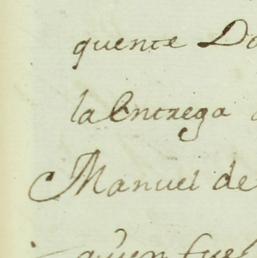 quente Do
la Entrega
Manuel de
quien fue